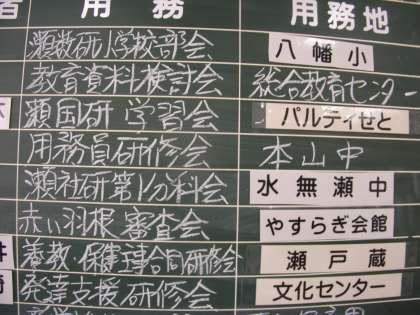 者 用務 用務地
瀬数研小学校部会 八幡小
教育資料検討会 総合教育センター
瀬国研学習会 パルティせと
用務員研修会 本山中
瀬社研第1分科会 水無瀬中
赤い羽根審査会 やすらぎ会館
井 養教・保健主事合同研修会 瀬戸蔵
崎 発達支援研修会 文化センター